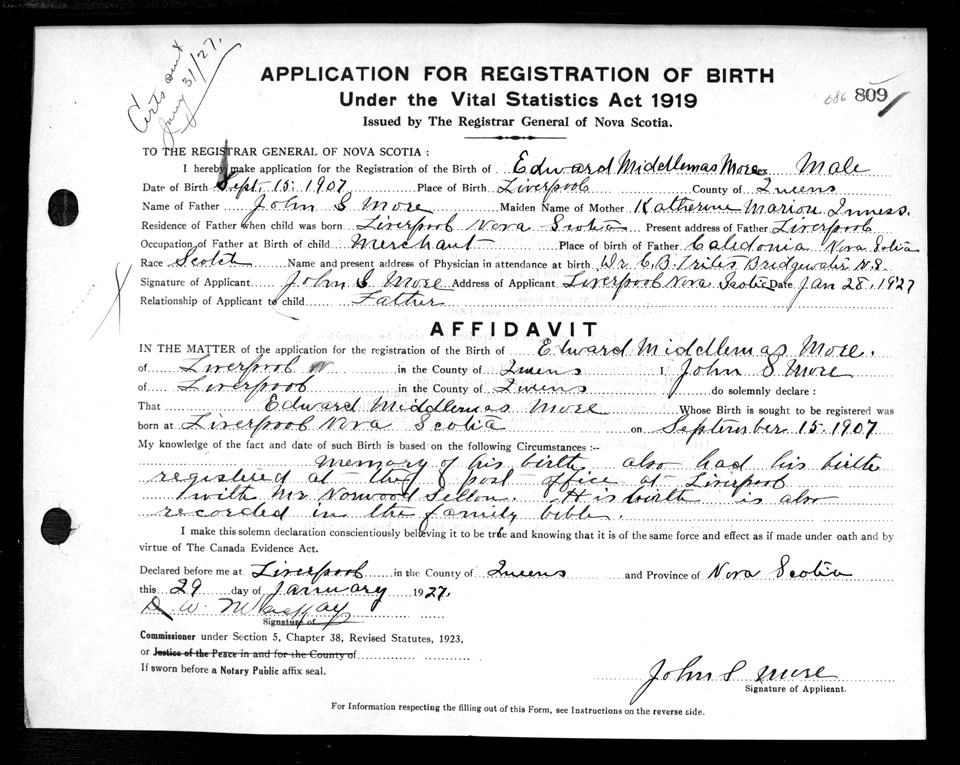 Certs sent
Jany 31/27.
APPLICATION FOR REGISTRATION OF BIRTH
Under the Vital Statistics Act 1919
686 809
Issued by The Registrar General of Nova Scotia.
TO THE REGISTRAR GENERAL OF NOVA SCOTIA :
I hereby make application for the Registration of the Birth of Edward Middlemas More Sex Male
Date of Birth Sept. 15. 1907 Place of Birth Liverpool County of Queens
Name of Father John S More Maiden Name of Mother Katherine Marion Inness.
Residence of Father when child was born Liverpool Nova Scotia Present address of Father Liverpool
Occupation of Father at Birth of child Merchant Place of birth of Father Caledonia Nova Scotia
Race Scotch Name and present address of Physician in attendance at birth Dr C. B. Trites Bridgewater N.S.
Signature of Applicant John S More Address of Applicant Liverpool Nova Scotia Date Jan 28. 1927
Relationship of Applicant to child Father
AFFIDAVIT
IN THE MATTER of the application for the registration of the Birth of Edward Middlemas More.
of Liverpool in the County of Queens I, John S More
of Liverpool in the County of Queens do solemnly declare :
That Edward Middlemas More Whose Birth is sought to be registered was
born at Liverpool Nova Scotia on September 15. 1907
My knowledge of the fact and date of such Birth is based on the following Circumstances :-
Memory of his birth, also had his birth
registered at the post office at Liverpool
with Mr. Norwood Sellon. His birth is also
recorded in the family bible.
I make this solemn declaration conscientiously believing it to be true and knowing that it is of the same force and effect as if made under oath and by
virtue of The Canada Evidence Act.
Declared before me at Liverpool in the County of Queens and Province of Nova Scotia
this 29 day of January 1927.
D. W. MacKay
Signature of
Commissioner under Section 5, Chapter 38, Revised Statutes, 1923,
or Justice of the Peace in and for the County of
If sworn before a Notary Public affix seal.
John S More
Signature of Applicant.
For Information respecting the filling out of this Form, see Instructions on the reverse side.